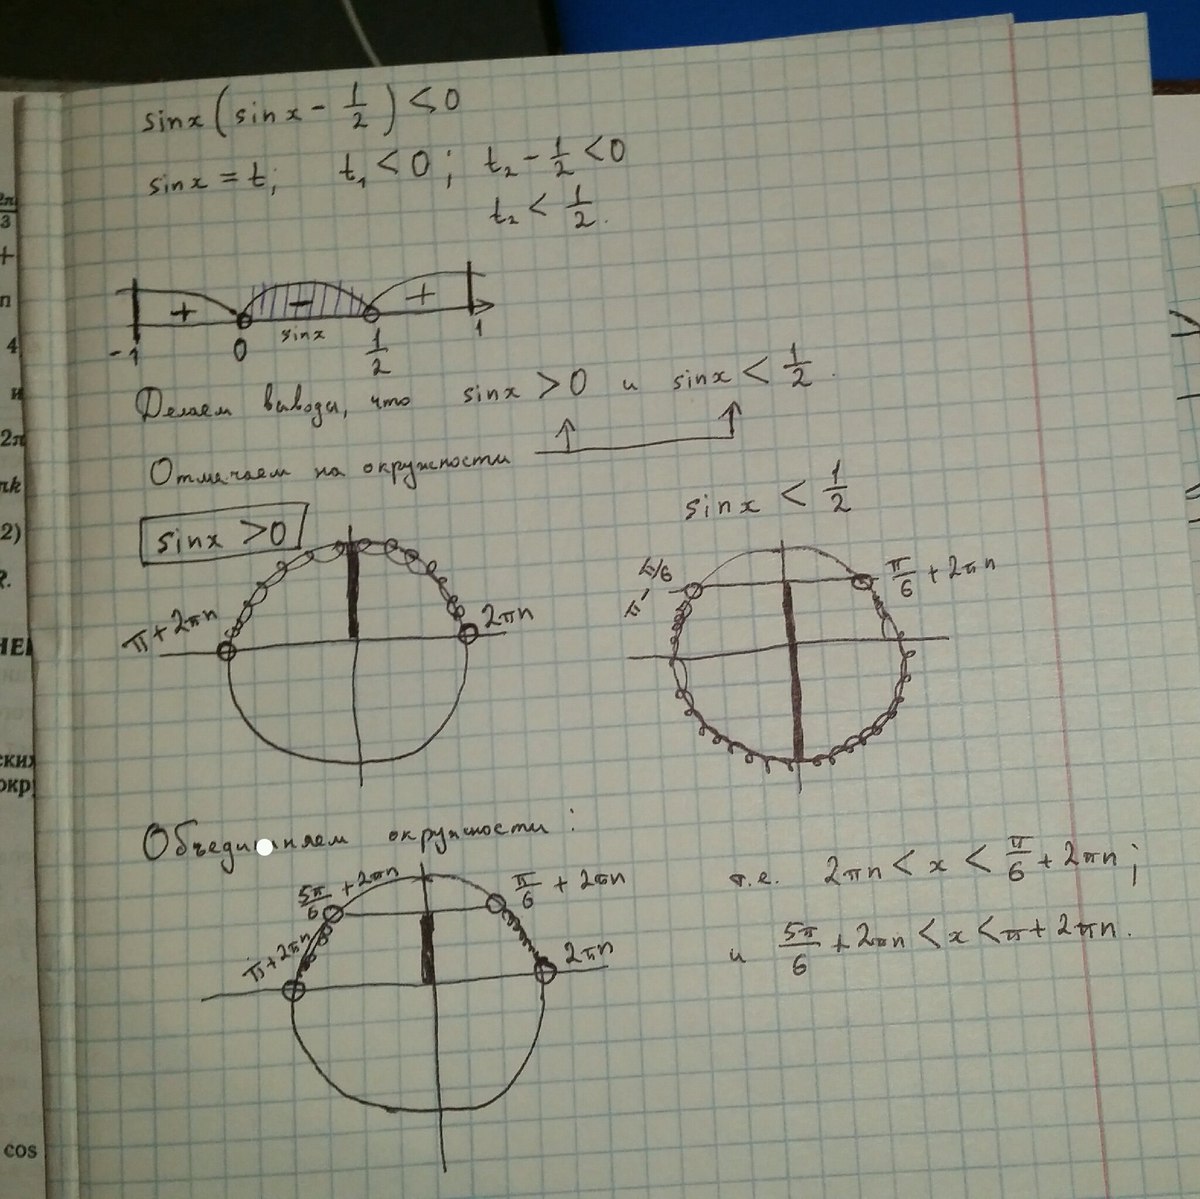 sinx(sinx - 1/2) < 0
sinx = t; t₁ < 0; t₂ - 1/2 < 0
t₂ < 1/2.
+ - +
-1 0 sinx 1/2 1
Делаем выводы, что sinx > 0 и sinx < 1/2.
Отмечаем на окружности
sinx > 0
sinx < 1/2
π + 2πn 2πn
π - π/6 π/6 + 2πn
Объединяем окружности:
5π/6 + 2πn π/6 + 2πn
π + 2πn 2πn
т.е. 2πn < x < π/6 + 2πn;
и 5π/6 + 2πn < x < π + 2πn.
2π
3
+
п
4
и
2π
πk
2)
R.
НЕ
ских
окр
cos